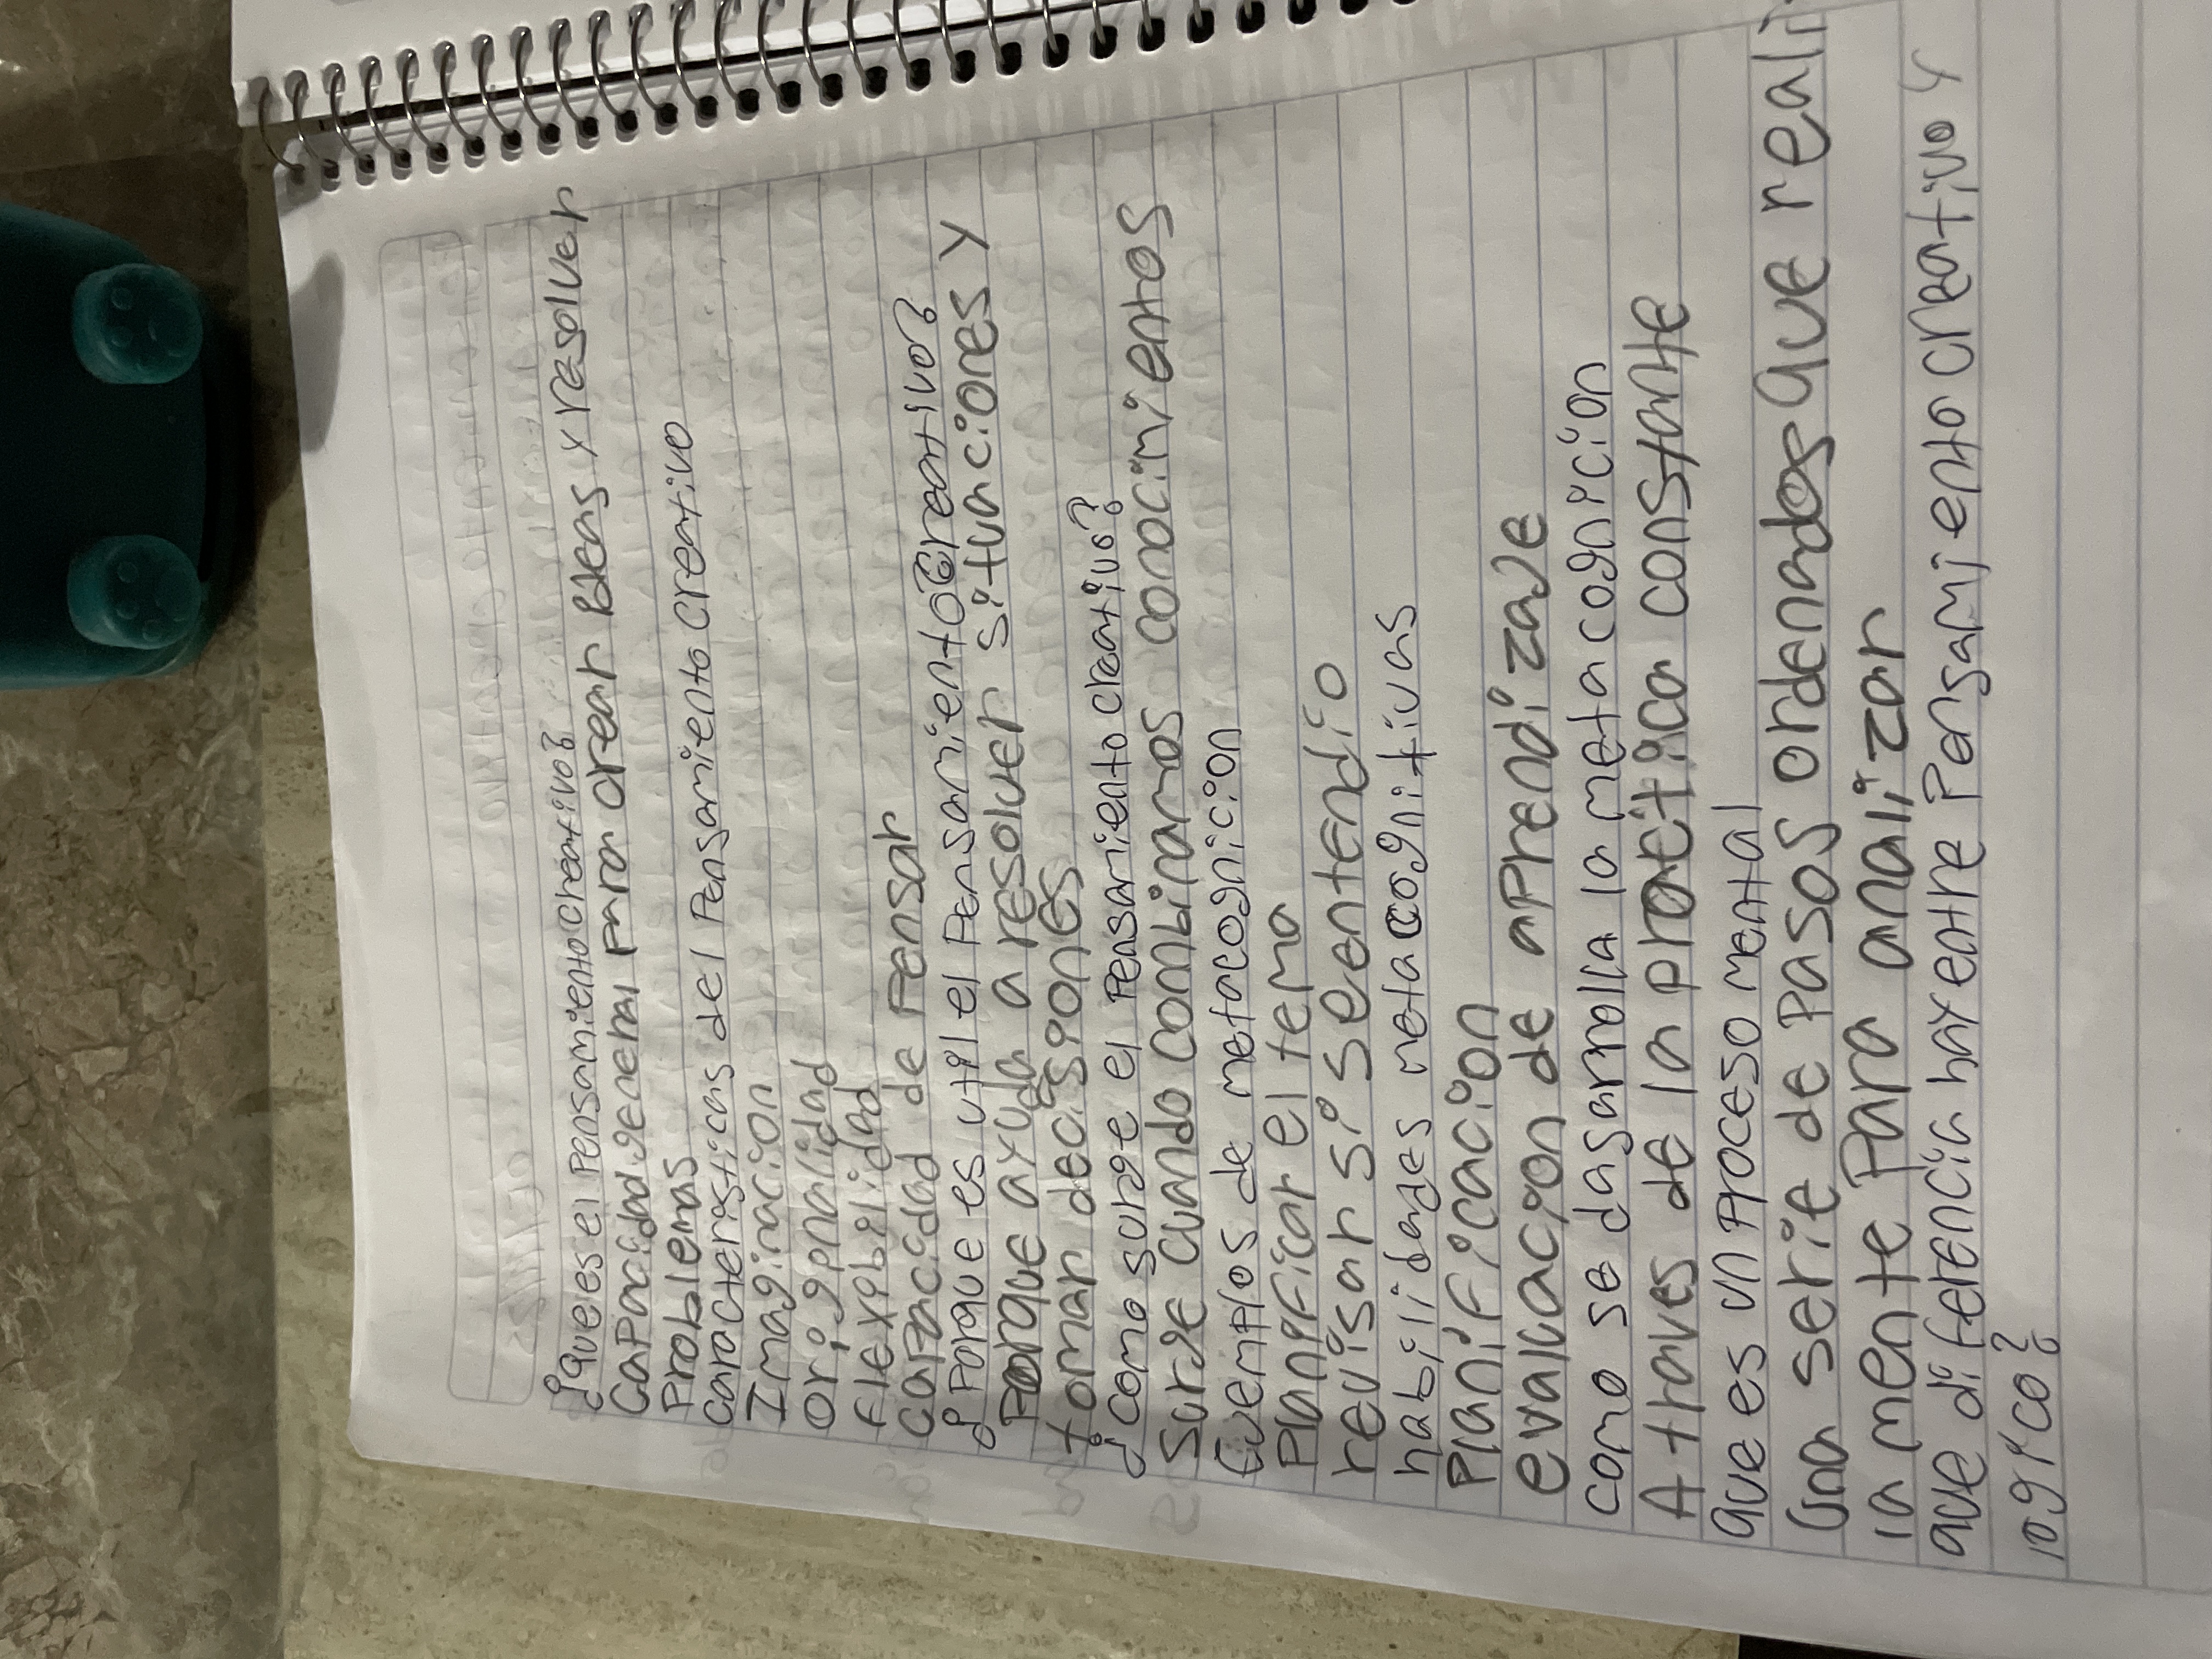 ¿que es el Pensamiento creativo?
Capacidad general para crear Ideas y resolver
Problemas
características del Pensamiento creativo
Imaginacion
originalidad
Flexibilidad
Capacidad de Pensar
¿Porque es util el Pensamiento Creativo?
Porque ayuda a resolver situaciones y
tomar decisiones
¿como surge el Pensamiento creativo?
Surge cuando combinamos conocimientos
Ejemplos de metacognicion
Planificar el tema
revisar si se entendio
habilidades metacognitivas
Planificacion
evaluacion de aPrendizaje
como se dasarrolla la metacognicion
A traves de la práctica constante
que es un Proceso mental
Una serie de Pasos ordenados que reali
la mente Para analizar
que diferencia hay entre Pensamiento creativo y
logico?